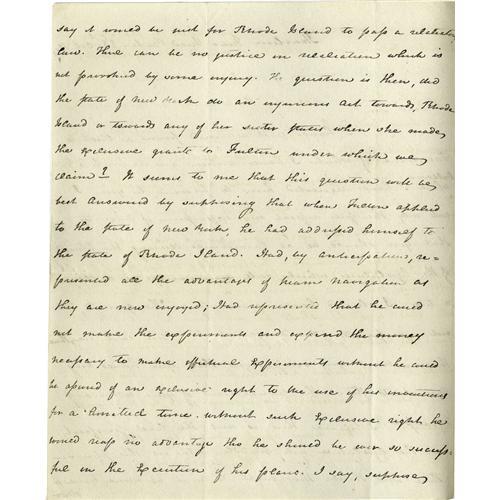 say it would be just for Rhode Island to pass a retaliatory
law. There can be no justice in retaliation which is
not provoked by some injury. The question is then, did
the State of New York do an injurious act towards, Rhode
Island or towards any of her sister States when she made
the exclusive grants to Fulton under which we
claim? It seems to me that this question will be
best answered by supposing that when Fulton applied
to the State of New York, he had addressed himself to
the State of Rhode Island. Had, by anticipation, re=
presented all the advantages of steam navigation as
they are now enjoyed; Had represented that he could
not make the experiments and expend the money
necessary to make effectual experiments without he could
be assured of an exclusive right to the use of his inventions
for a limited time. without such exclusive right, he
would reap no advantage tho he should be ever so success=
ful in the execution of his plans. I say, suppose,